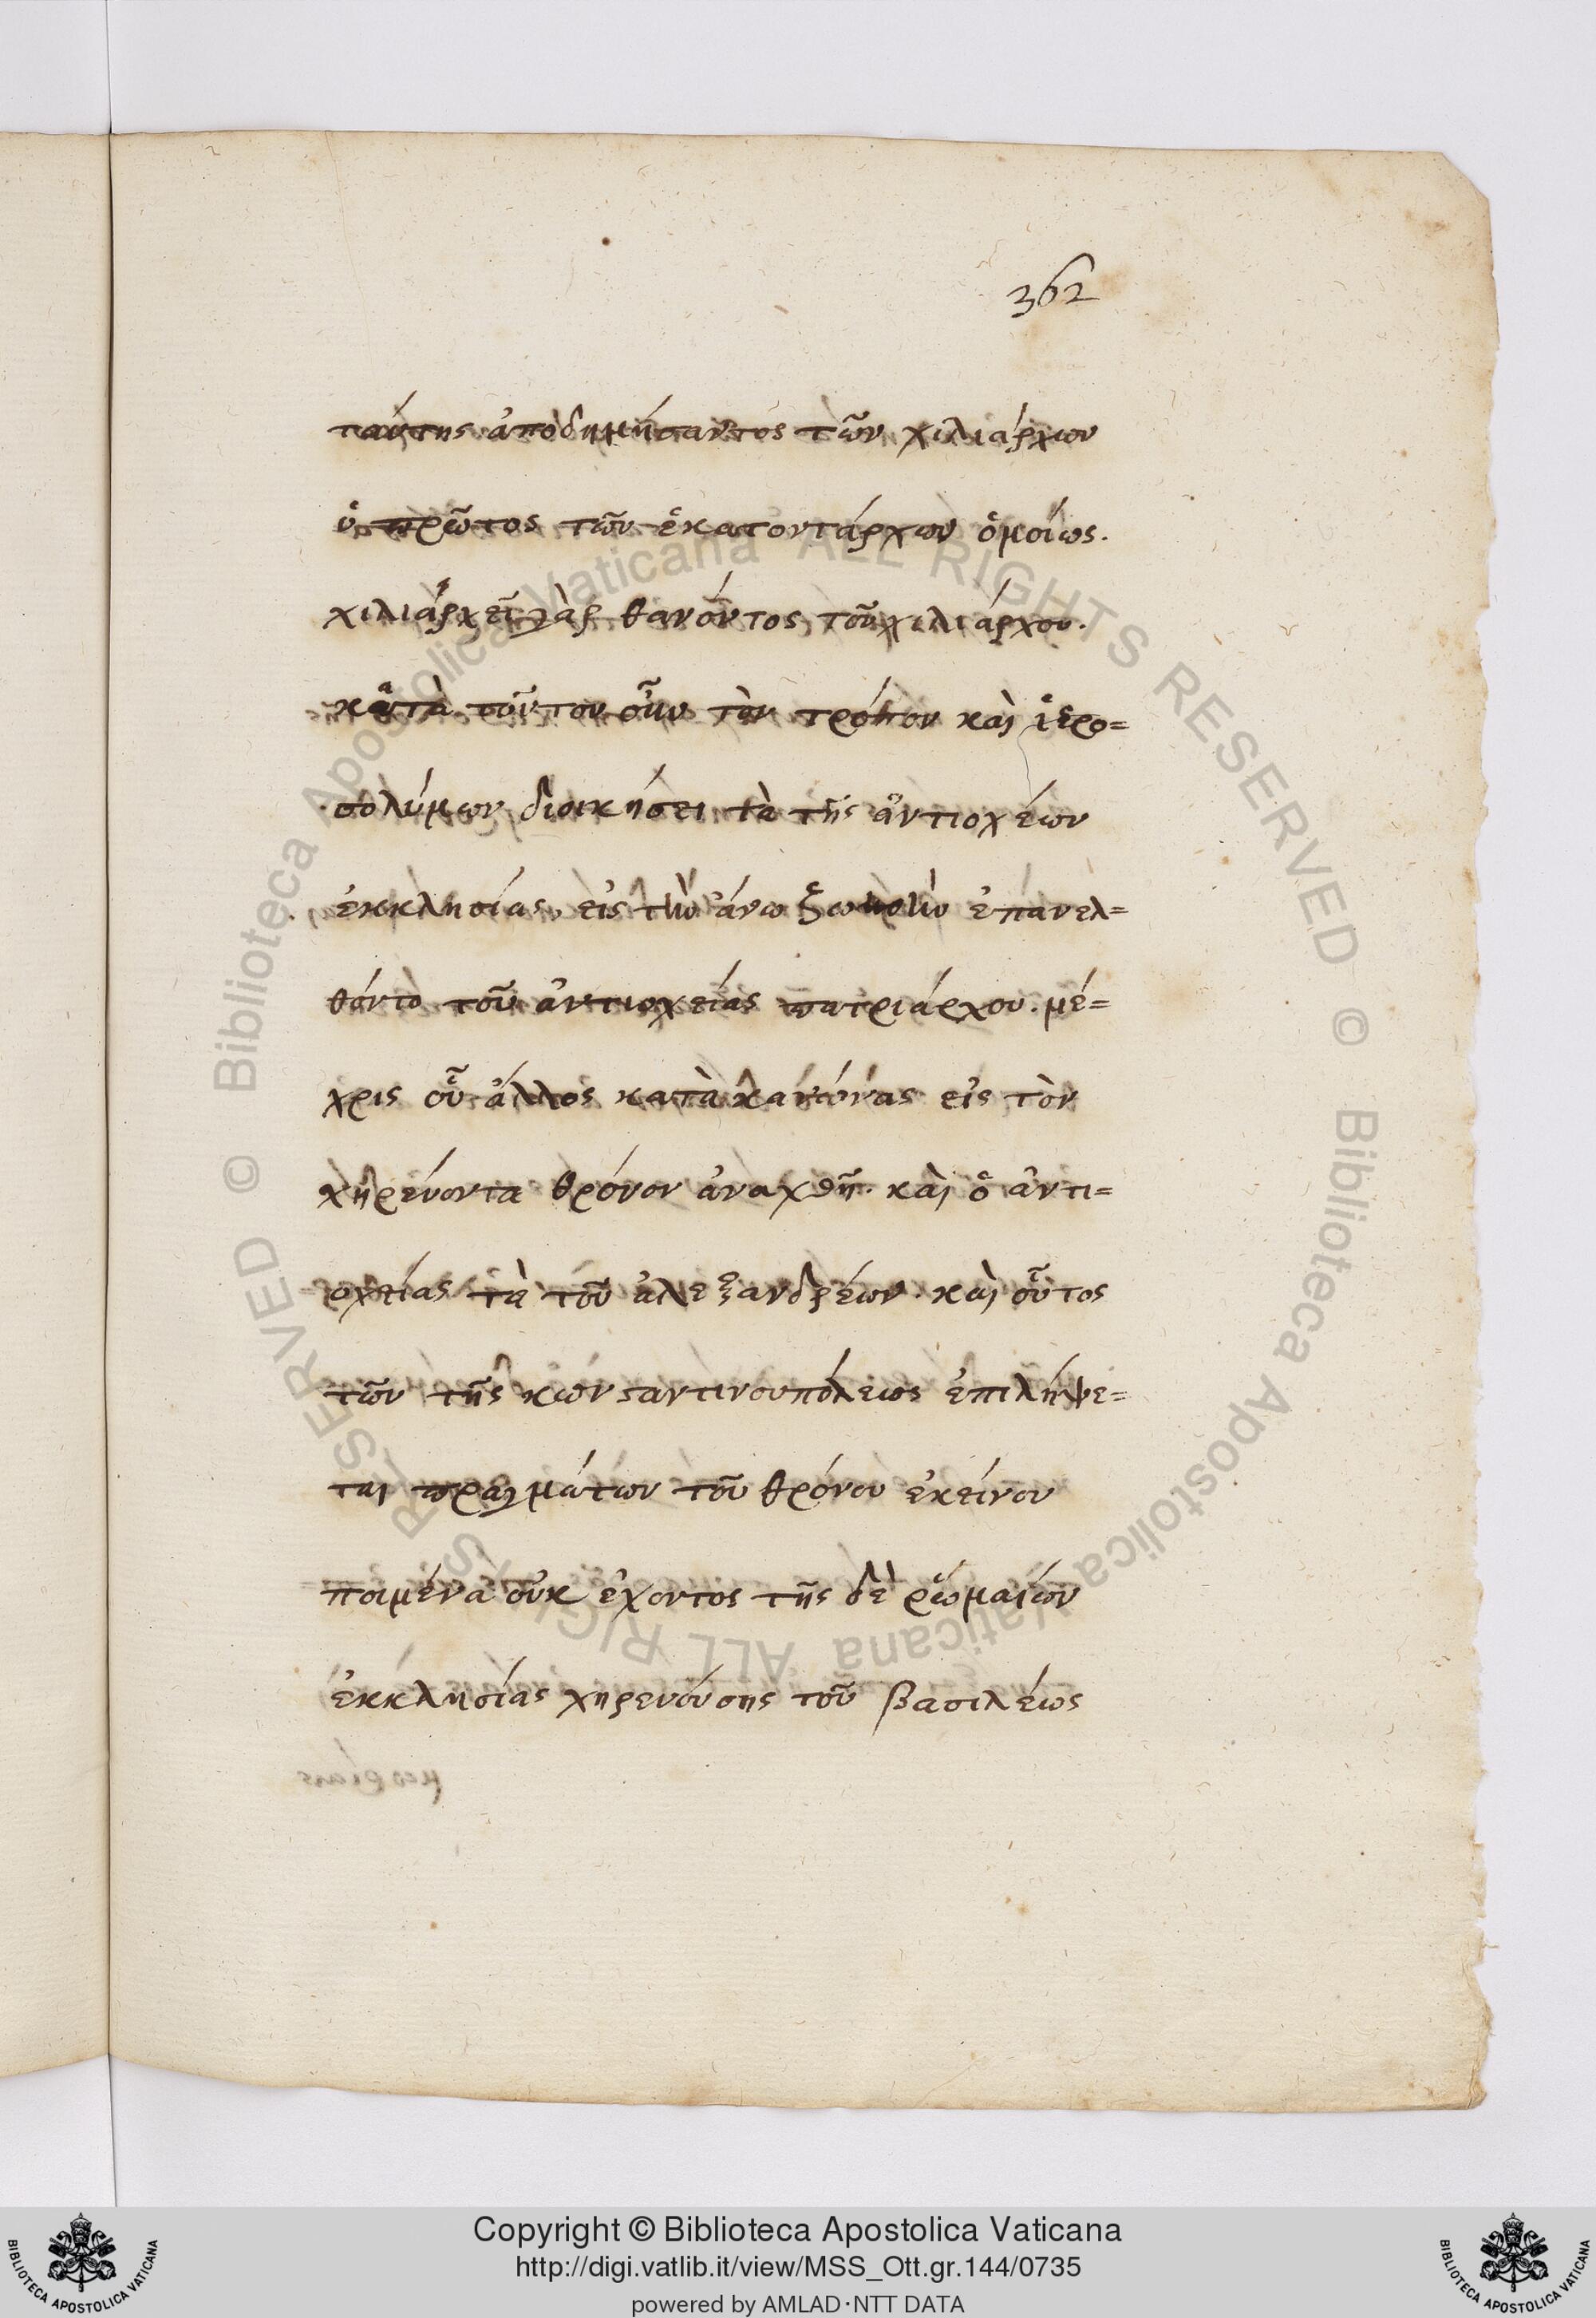 362
ταύτης ἀποδημήσαντος τῶν χιλιάρχων
ὁ πρῶτος τῶν ἑκατοντάρχων ὁμοίως.
χιλιάρχει γὰρ θανόντος τοῦ χιλιάρχου.
κατὰ τοῦτον οὖν τὸν τρόπον καὶ ἱερο=
σολύμων διοικήσει τὰ τῆς ἀντιοχέων
ἐκκλησίας, εἰς τὴν ἄνω ζωηρὴν ἐπανελ=
θόντο τοῦ ἀντιοχείας πατριάρχου. μέ=
χρις οὗ ἄλλος κατὰ κανόνας εἰς τὸν
χηρεύοντα θρόνον ἀναχθῇ. καὶ ὁ ἀντι=
οχείας τὰ τοῦ ἀλεξανδρέων. καὶ οὗτος
τῶν τῆς κωνσταντινουπόλεως ἐπιλήψε=
ται πραγμάτων τοῦ θρόνου ἐκείνου
ποιμένα οὐκ ἔχοντος τῆς δὲ ῥωμαίων
ἐκκλησίας χηρευούσης τοῦ βασιλέως
© Biblioteca Apostolica Vaticana ALL RIGHTS RESERVED © Biblioteca Apostolica Vaticana ALL RIGHTS RESERVED
Copyright © Biblioteca Apostolica Vaticana
http://digi.vatlib.it/view/MSS_Ott.gr.144/0735
powered by AMLAD·NTT DATA
BIBLIOTECA APOSTOLICA VATICANA
BIBLIOTECA APOSTOLICA VATICANA